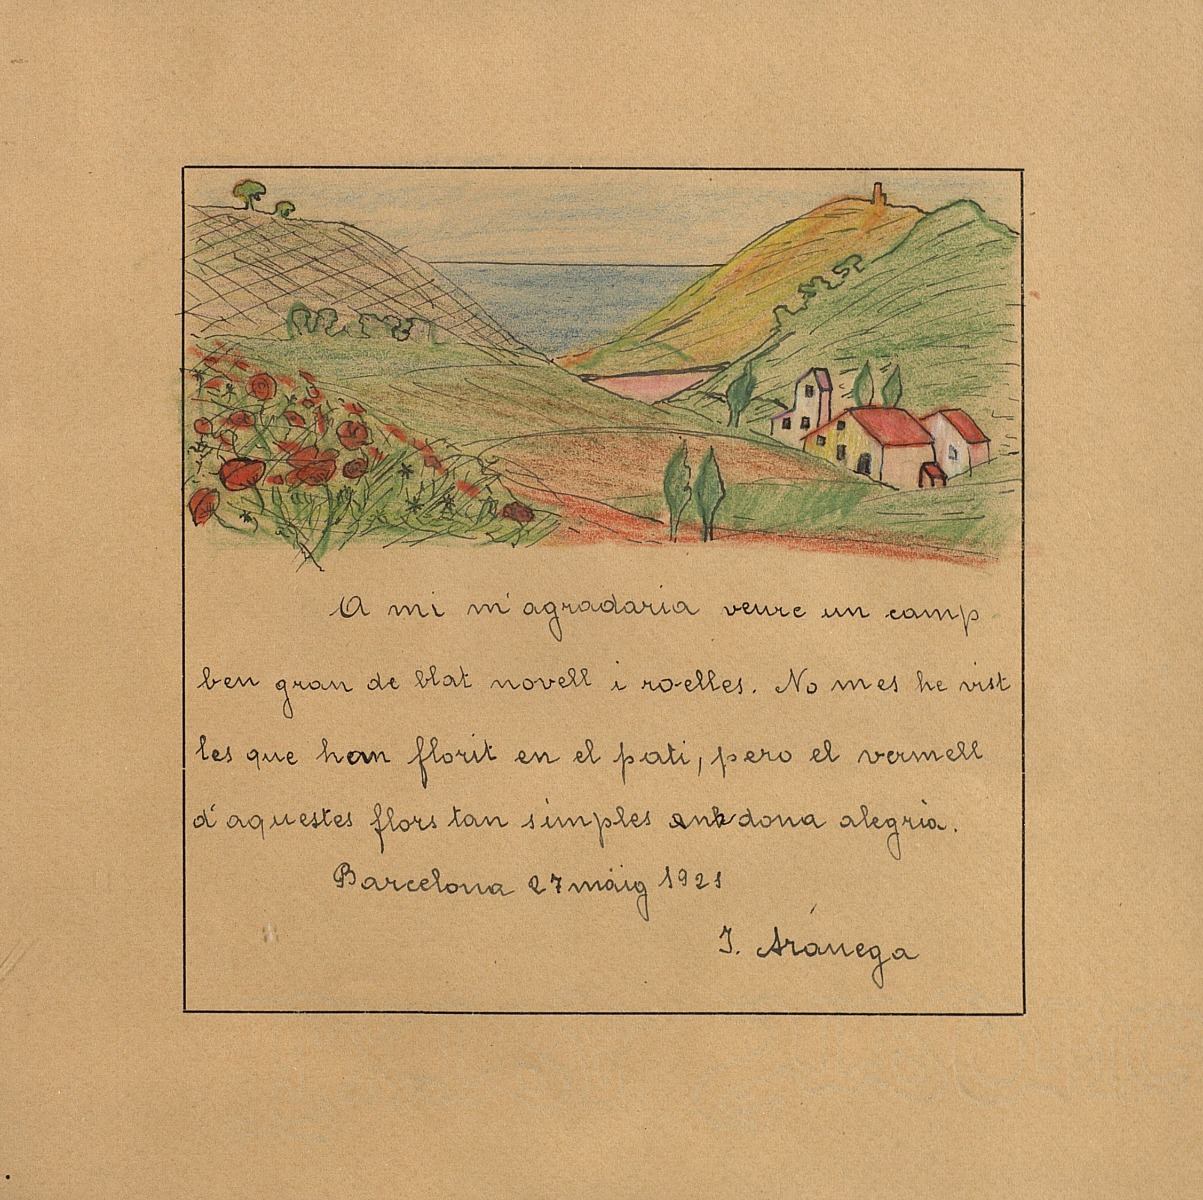 A mi m'agradaria veure un camp
ben gran de blat novell i roelles. No mes he vist
les que han florit en el pati, pero el vermell
d'aquestes flors tan simples dona alegria.
Barcelona 27 maig 1921
J. Aránega